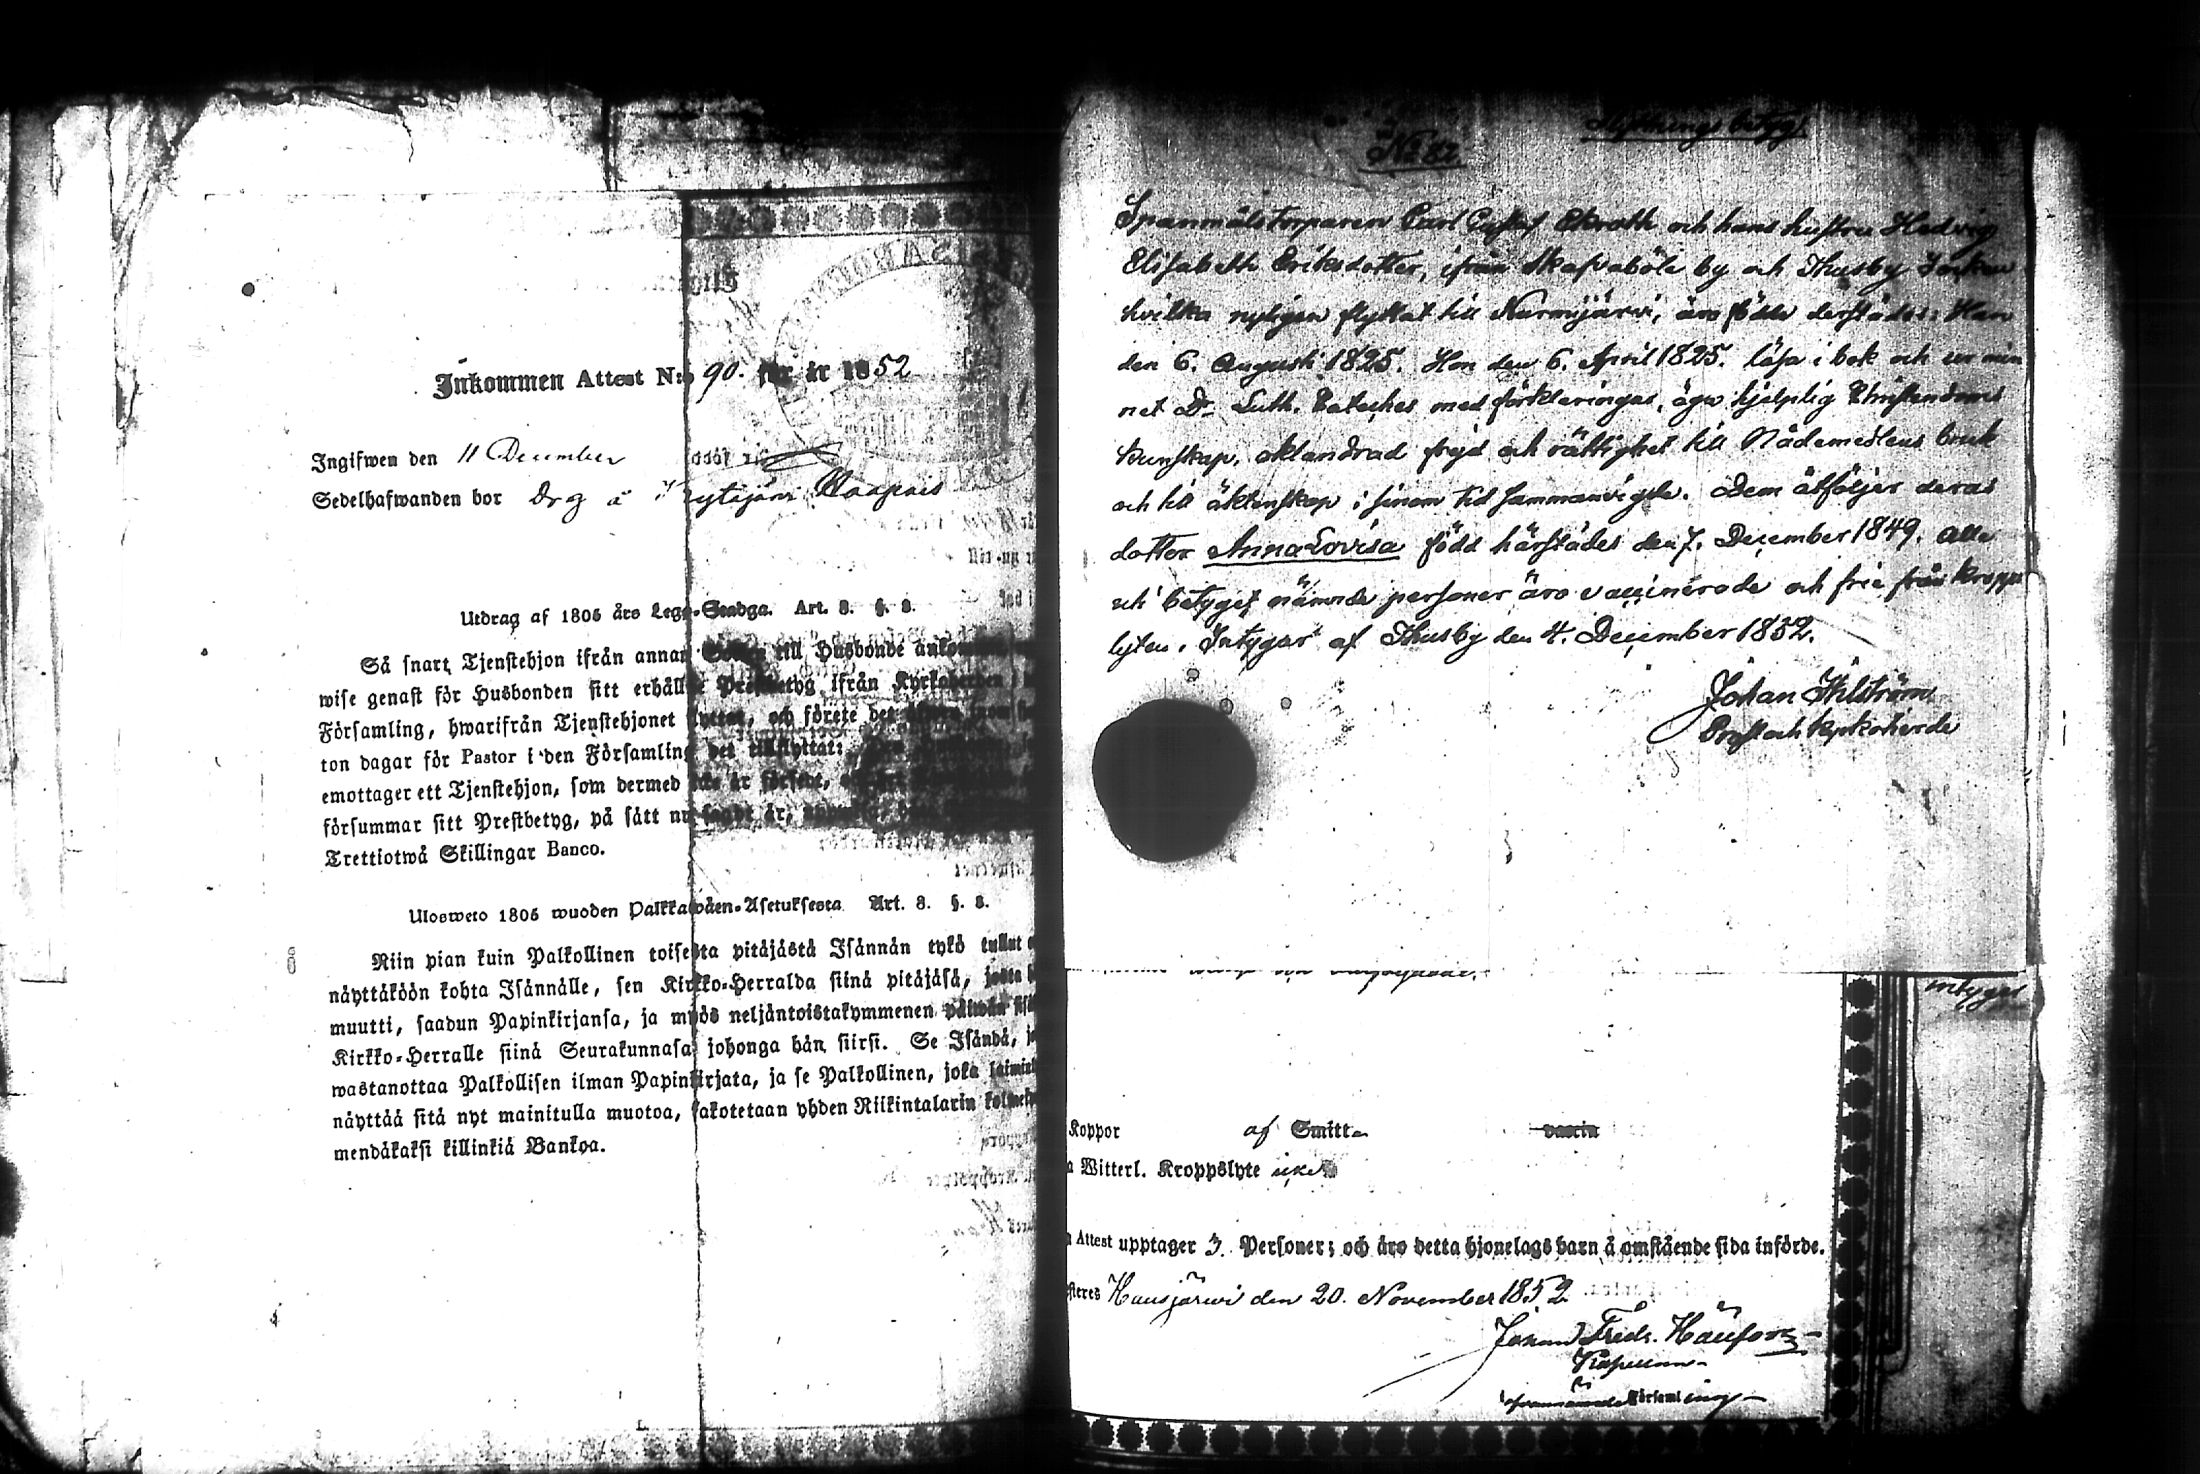 Inkommen Attest N:o 90. för år 1852
Ingifwen den 11 December
Sedelhafwanden bor Drg å Kytäjärvi Haapais
Utdrag af 1805 års Lego-Stadga. Art. 8. §. 8.
Så snart Tjenstehjon ifrån annan Socken till Husbonde ankommit
wise genast för Husbonden sitt erhållne Prestbetyg ifrån Kyrkoherden i
Församling, hwarifrån Tjenstehjonet flyttat, och förete det
ton dagar för Pastor i den Församling det tillflyttat;
emottager ett Tjenstehjon, som dermed icke är försedt,
försummar sitt Prestbetyg, på sätt nu sagdt är,
Trettiotwå Skillingar Banco.
Ulosweto 1805 wuoden Palkkawäen-Asetuksesta Art. 8. §. 8.
Niin pian kuin Palkollinen toisesta pitäjästä Isännän tykö tullut
näyttäköön kohta Isännälle, sen Kirkko-Herralda siinä pitäjäsä, josta
muutti, saadun Papinkirjansa, ja myös neljäntoistakymmenen päiwän
Kirkko-Herralle siinä Seurakunnasa johonga hän siirsi. Se Isändä,
wastanottaa Palkollisen ilman Papinkirjata, ja se Palkollinen, joka
näyttää sitä nyt mainitulla muotoa, sakotetaan yhden Riikintalarin
mendäkaksi killinkiä Bankoa.
Flyttningsbetyg
No 82.
Spanmålstorparen Carl Gustaf Ekroth och hans hustru Hedvig
Elisabeth Eriksdotter, ifrån Skafvaböle by och Thusby Socken
hvilka nyligen flyttat till Nurmijärvi, äro födde derstädes: Han
den 6. Augusti 1825. Hon den 6. April 1825. läsa i bok och ur min
net Dr Luth. Cateches med förklaringar, äga hjelplig Christendoms
kunskap, oklandrad frejd och rättighet till Nådemedlens bruk
och till äktenskap i sinom tid sammanvigde. Dem åtföljer deras
dotter Anna Lovisa född härstädes den 7. December 1849. Alla
uti betyget nämnde personer äro vaccinerade och frie från kropps
lyten. Intygar af Thusby den 4. December 1852.
Johan Ihlström
Prost och Kyrkoherde
intyget
Koppor af Smitta
Witterl. Kroppslyte icke
Attest upptager 3. Personer; och äro detta hjonelags barn å omstående sida införde.
Hausjärvi den 20. November 1852
Johan Fredr.
Kapellan
Församling